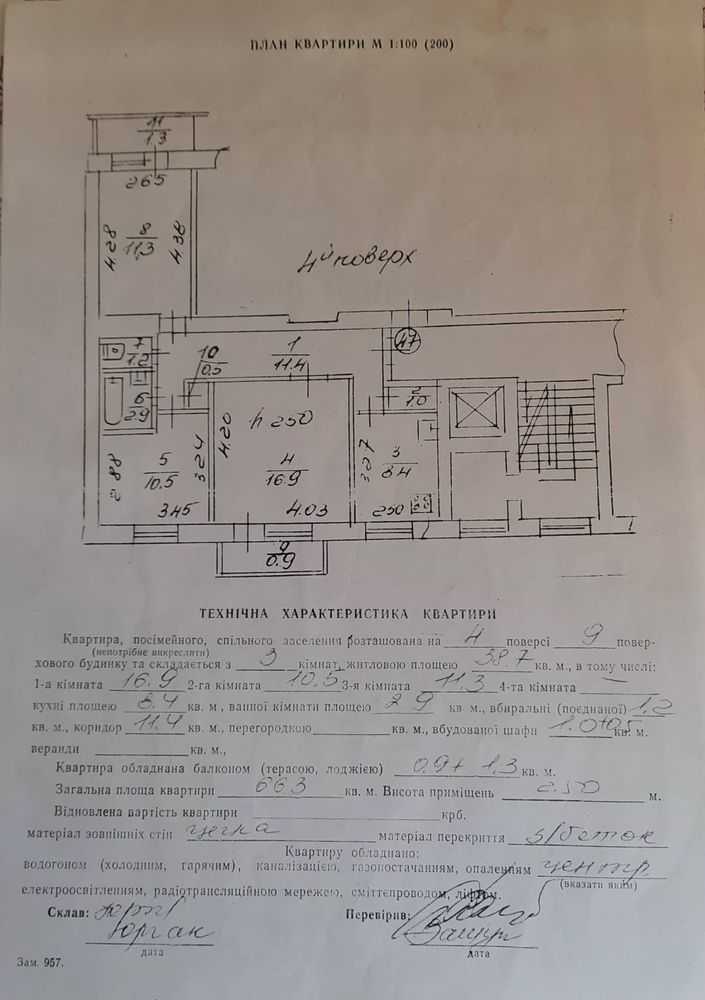 ПЛАН КВАРТИРИ М 1:100 (200)
11
1.3
265
4.28
8
11,3
4.38
4й поверх
7
1.2
10
0.5
1
11.4
47
6
2.9
2
1.0
h 250
4.20
3.24
5
10.5
2.88
4
16.9
3.27
3
8.4
3.45
4.03
250
9
0.9
ТЕХНІЧНА ХАРАКТЕРИСТИКА КВАРТИРИ
Квартира, посімейного, спільного заселення розташована на 4 поверсі 9 повер-
(непотрібне викреслити)
хового будинку та складається з 3 кімнат, житловою площею 38.7 кв. м., в тому числі:
1-а кімната 16.9 2-га кімната 10.5 3-я кімната 11.3 4-та кімната —
кухні площею 8.4 кв. м, ванної кімнати площею 2.9 кв. м., вбиральні (поєднаної) 1,2
кв. м., коридор 11.4 кв. м., перегородкою кв. м., вбудованої шафи 1.0+0.5 кв. м.
веранди кв. м.,
Квартира обладнана балконом (терасою, лоджією) 0.9+1.3 кв. м.
Загальна площа квартири 66.3 кв. м. Висота приміщень 2.50 м.
Відновлена вартість квартири крб.
матеріал зовнішніх стін цегла матеріал перекриття з/бетон
Квартиру обладнано:
водогоном (холодним, гарячим), каналізацією, газопостачанням, опаленням центр.
(вказати яким)
електроосвітленням, радіотрансляційною мережею, сміттєпроводом, ліфтом.
Склав: Перевірив:
дата дата
Зам. 957.